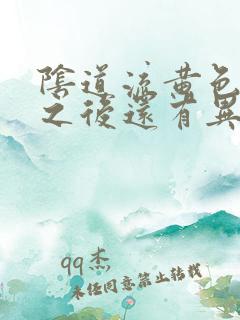 陰道流黃色
之後還有異
qq杰
未經同意禁止转载